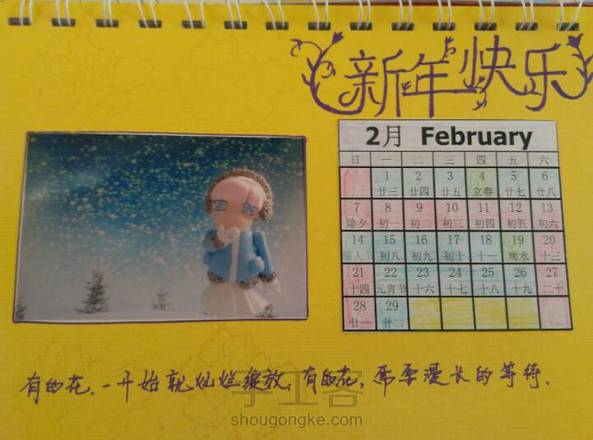 新年快乐
2月 February
日 一 二 三 四 五 六
1 2 3 4 5 6
廿三 廿四 廿五 立春 廿七 廿八
7 8 9 10 11 12 13
除夕 初一 初二 初三 初四 初五 初六
14 15 16 17 18 19 20
情人节 初八 初九 初十 十一 雨水 十三
21 22 23 24 25 26 27
十四 元宵节 十六 十七 十八 十九 二十
28 29
廿一 廿二
有的花,一开始就灿烂绽放,有的花,需要漫长的等待.
手工客
shougongke.com